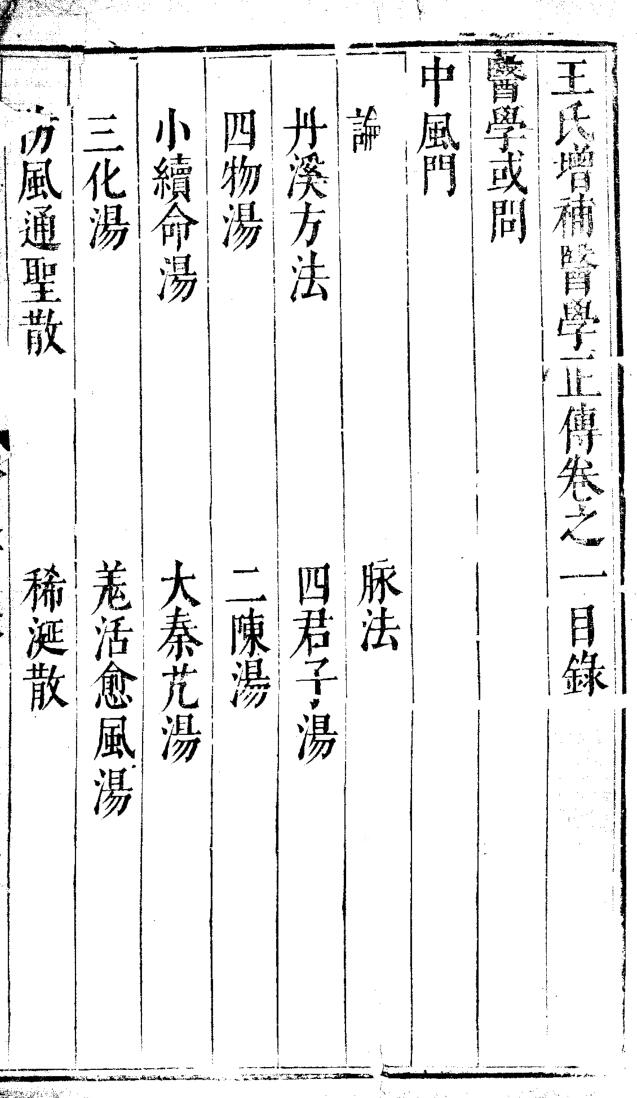 王氏增補醫學正傳卷之一目錄
醫學或問
中風門
論　脉法
丹溪方法　四君子湯
四物湯　二陳湯
小續命湯　大秦艽湯
三化湯　羗活愈風湯
防風通聖散　稀涎散